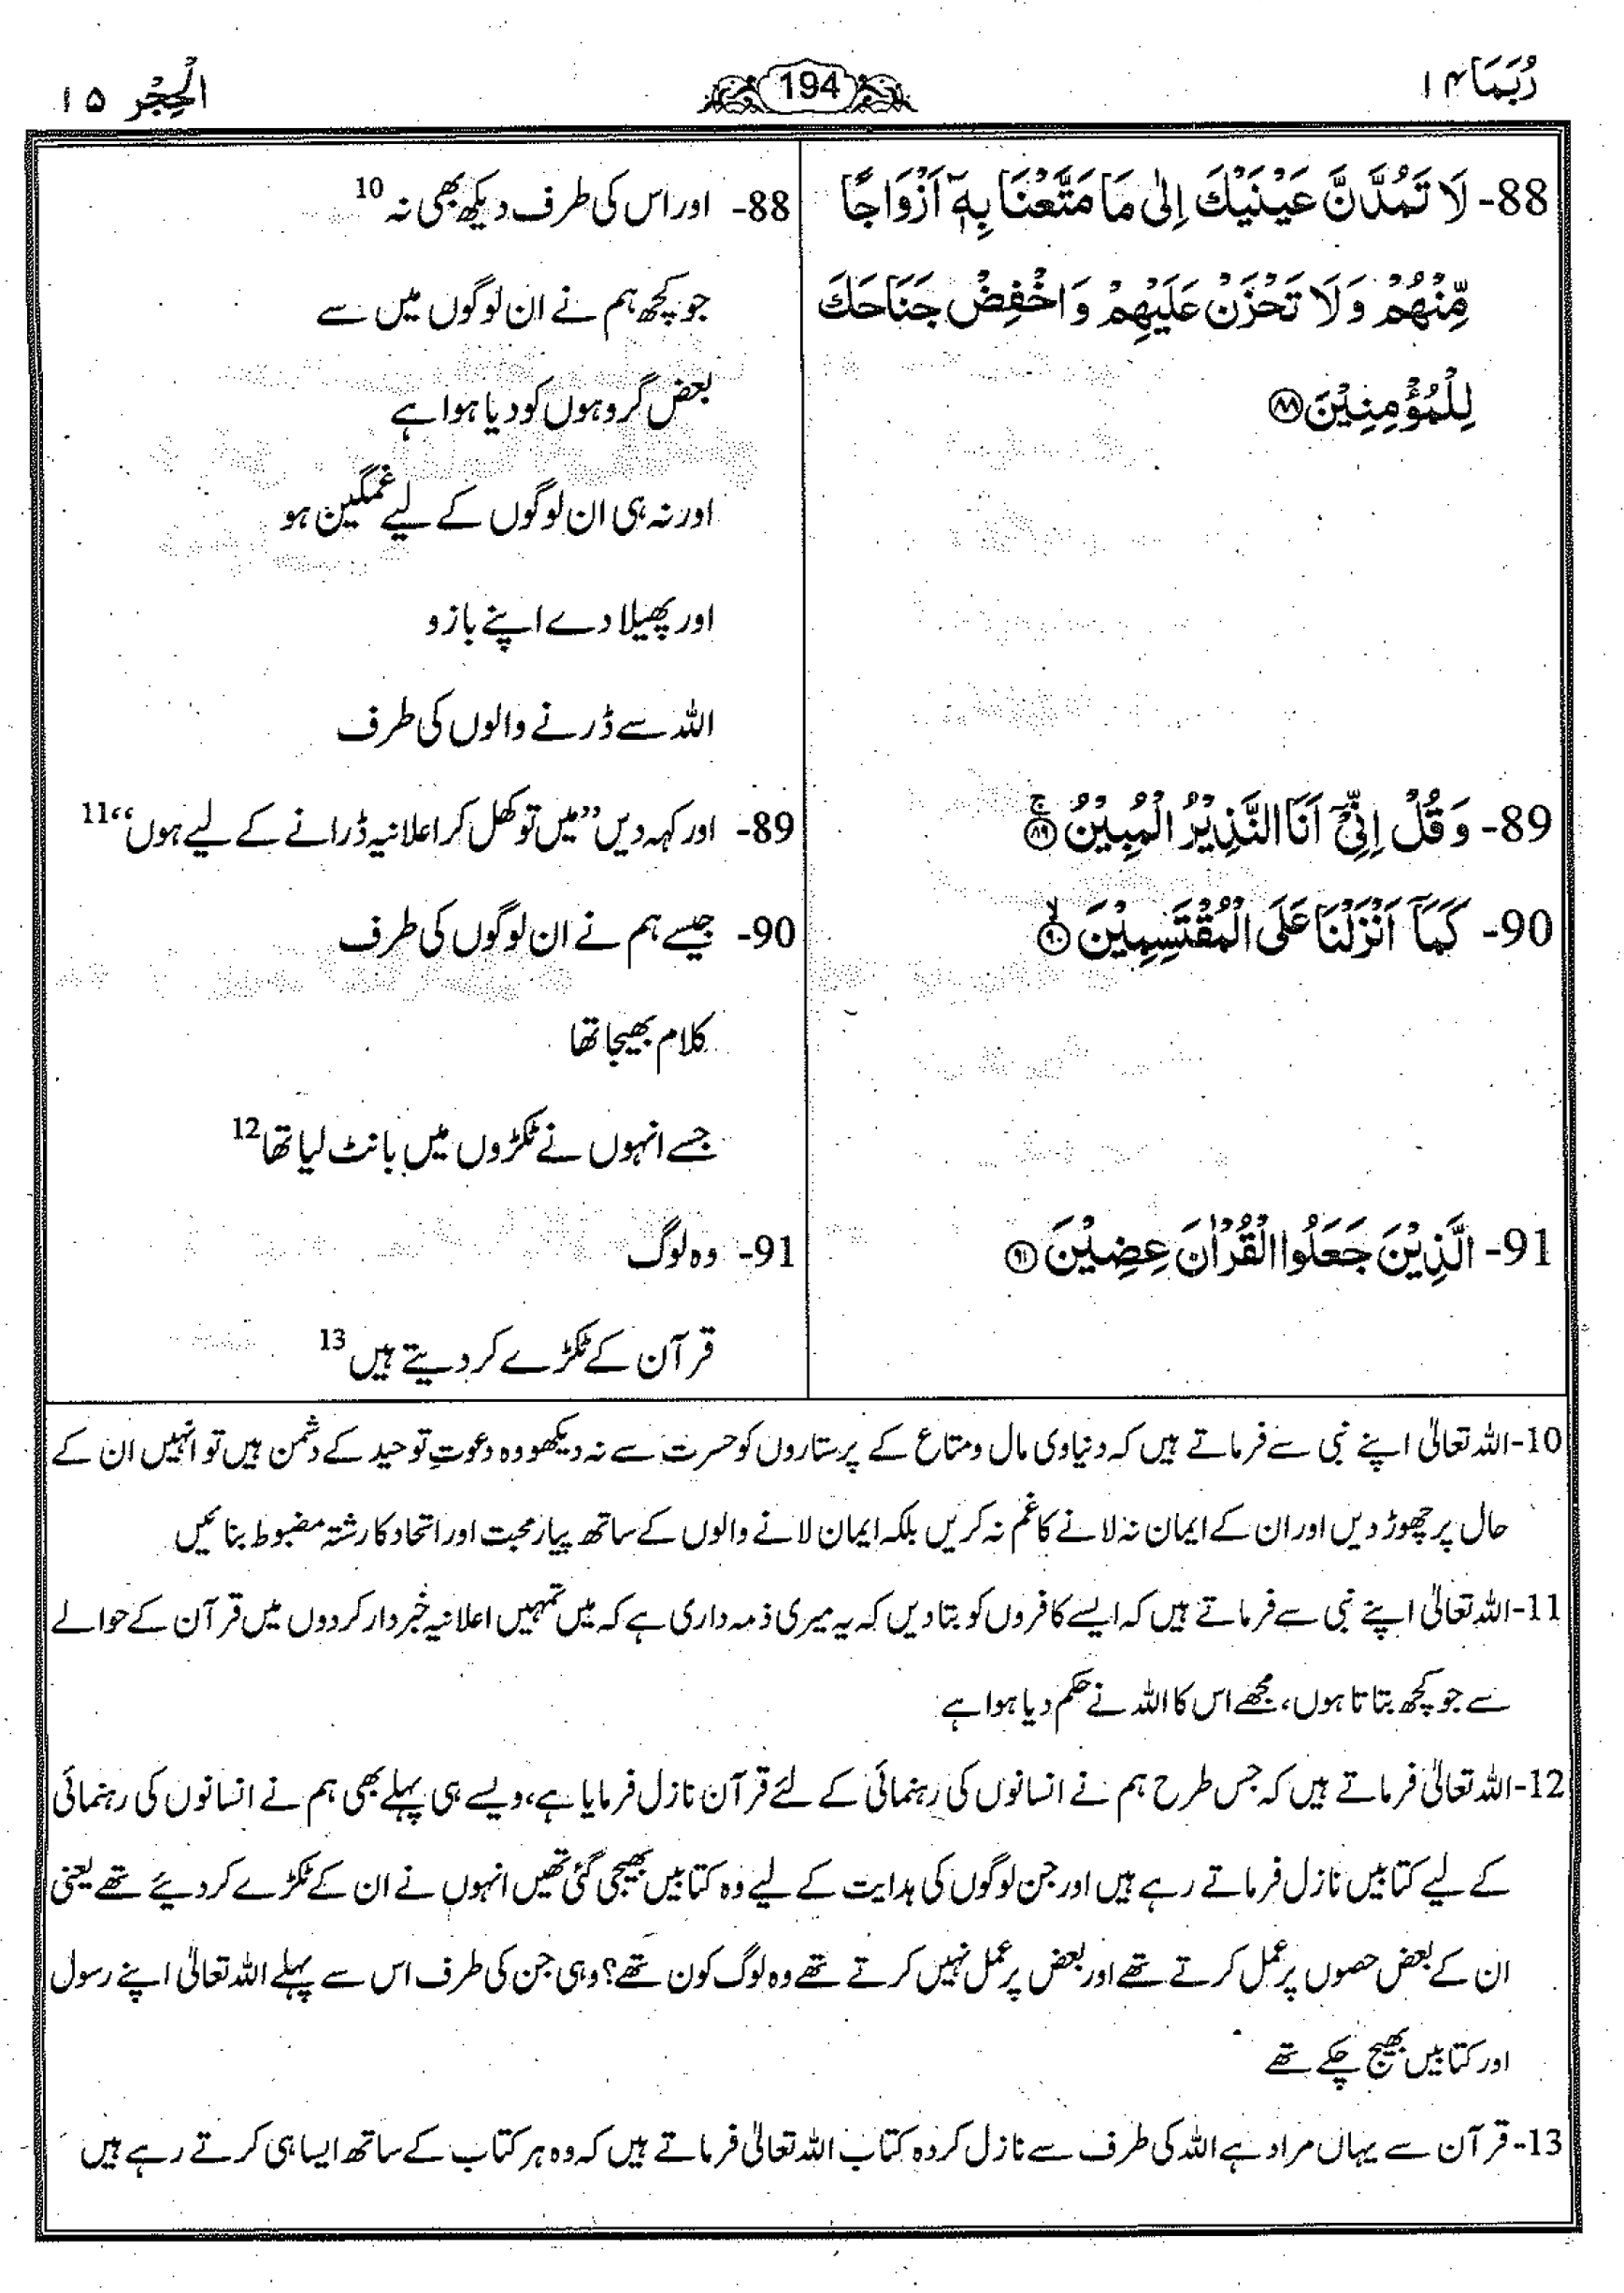 رُبَمَا ۱۴
194
الْحِجْر ۱۵
88- لَا تَمُدَّنَّ عَيْنَيْكَ اِلٰى مَا مَتَّعْنَا بِهٖٓ اَزْوَاجًا
مِّنْهُمْ وَلَا تَحْزَنْ عَلَيْهِمْ وَاخْفِضْ جَنَاحَكَ
لِلْمُؤْمِنِيْنَ ﴿۸۸﴾
89- وَقُلْ اِنِّيْٓ اَنَا النَّذِيْرُ الْمُبِيْنُ ﴿۸۹﴾ ۚ
90- كَمَآ اَنْزَلْنَا عَلَى الْمُقْتَسِمِيْنَ ﴿۹۰﴾ ۙ
91- الَّذِيْنَ جَعَلُوا الْقُرْاٰنَ عِضِيْنَ ﴿۹۱﴾
88- اور اس کی طرف دیکھ بھی نہ 10
جو کچھ ہم نے ان لوگوں میں سے
بعض گروہوں کو دیا ہوا ہے
اور نہ ہی ان لوگوں کے لیے غمگین ہو
اور پھیلا دے اپنے بازو
اللہ سے ڈرنے والوں کی طرف
89- اور کہہ دیں ”میں تو کھل کر اعلانیہ ڈرانے کے لیے ہوں“ 11
90- جیسے ہم نے ان لوگوں کی طرف
کلام بھیجا تھا
جسے انہوں نے ٹکڑوں میں بانٹ لیا تھا 12
91- وہ لوگ
قرآن کے ٹکڑے کر دیتے ہیں 13
10- اللہ تعالیٰ اپنے نبی سے فرماتے ہیں کہ دنیاوی مال و متاع کے پرستاروں کو حسرت سے نہ دیکھو وہ دعوتِ توحید کے دشمن ہیں تو انہیں ان کے
حال پر چھوڑ دیں اور ان کے ایمان نہ لانے کا غم نہ کریں بلکہ ایمان لانے والوں کے ساتھ پیار محبت اور اتحاد کا رشتہ مضبوط بنائیں
11- اللہ تعالیٰ اپنے نبی سے فرماتے ہیں کہ ایسے کافروں کو بتا دیں کہ یہ میری ذمہ داری ہے کہ میں تمہیں اعلانیہ خبردار کر دوں میں قرآن کے حوالے
سے جو کچھ بتاتا ہوں، مجھے اس کا اللہ نے حکم دیا ہوا ہے
12- اللہ تعالیٰ فرماتے ہیں کہ جس طرح ہم نے انسانوں کی رہنمائی کے لئے قرآن نازل فرمایا ہے، ویسے ہی پہلے بھی ہم نے انسانوں کی رہنمائی
کے لیے کتابیں نازل فرماتے رہے ہیں اور جن لوگوں کی ہدایت کے لیے وہ کتابیں بھیجی گئی تھیں انہوں نے ان کے ٹکڑے کر دیئے تھے یعنی
ان کے بعض حصوں پر عمل کرتے تھے اور بعض پر عمل نہیں کرتے تھے وہ لوگ کون تھے؟ وہی جن کی طرف اس سے پہلے اللہ تعالیٰ اپنے رسول
اور کتابیں بھیج چکے تھے
13- قرآن سے یہاں مراد ہے اللہ کی طرف سے نازل کردہ کتاب اللہ تعالیٰ فرماتے ہیں کہ وہ ہر کتاب کے ساتھ ایسا ہی کرتے رہے ہیں